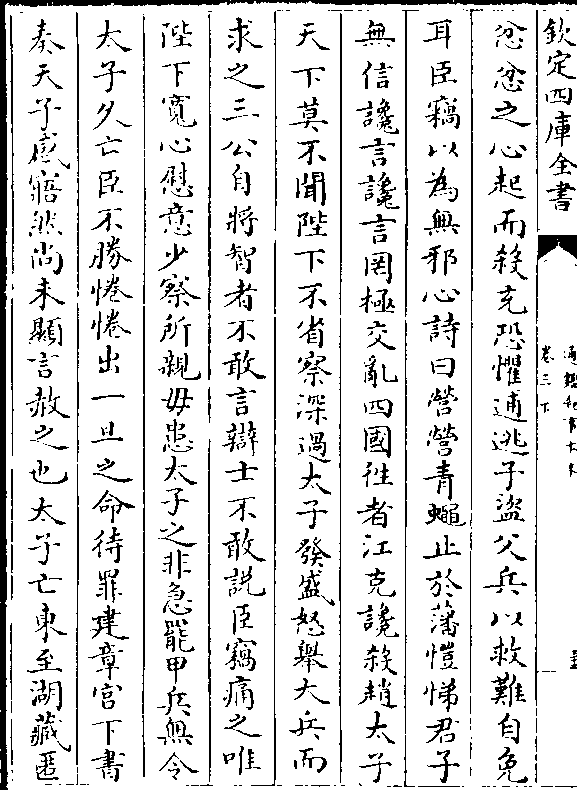 欽定四庫全書
卷三下
忿忿之心起而殺充恐懼逋逃子盜父兵以救難自免
耳臣竊以為無邪心詩曰營營青蠅止於藩愷悌君子
無信讒言讒言罔極交亂四國徃者江充讒殺趙太子
天下莫不聞陛下不省察深過太子發盛怒舉大兵而
求之三公自將智者不敢言辯士不敢説臣竊痛之唯
陛下寛心慰意少察所親毋患太子之非急罷甲兵無令
太子久亡臣不勝惓惓出一旦之命待罪建章宮下書
奏天子感寤然尚未顯言赦之也太子亡東至湖藏匿